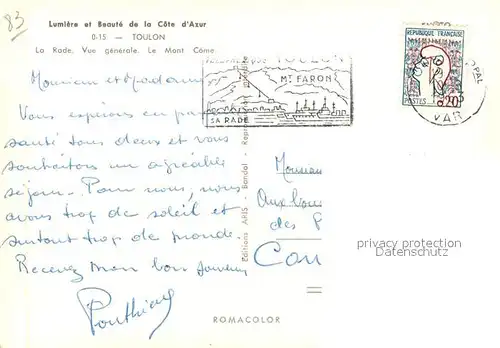 83
Lumière et Beauté de la Côte d'Azur
0-15 — TOULON
La Rade. Vue générale. Le Mont Côme
Monsieur et Madame
Vous espérons en
santé tous deux et vous
souhaitons un agréable
séjour. Pour nous, nous
avons trop de soleil et
surtout trop de monde.
Recevez mon bon souvenir
Editions ARIS - Bandol - Reproduction
TOULON
MT FARON
SA RADE
RÉPUBLIQUE FRANÇAISE
POSTES
0,20
VAR
Monsieur
Aux
des P
Can
privacy protection
Datenschutz
ROMACOLOR